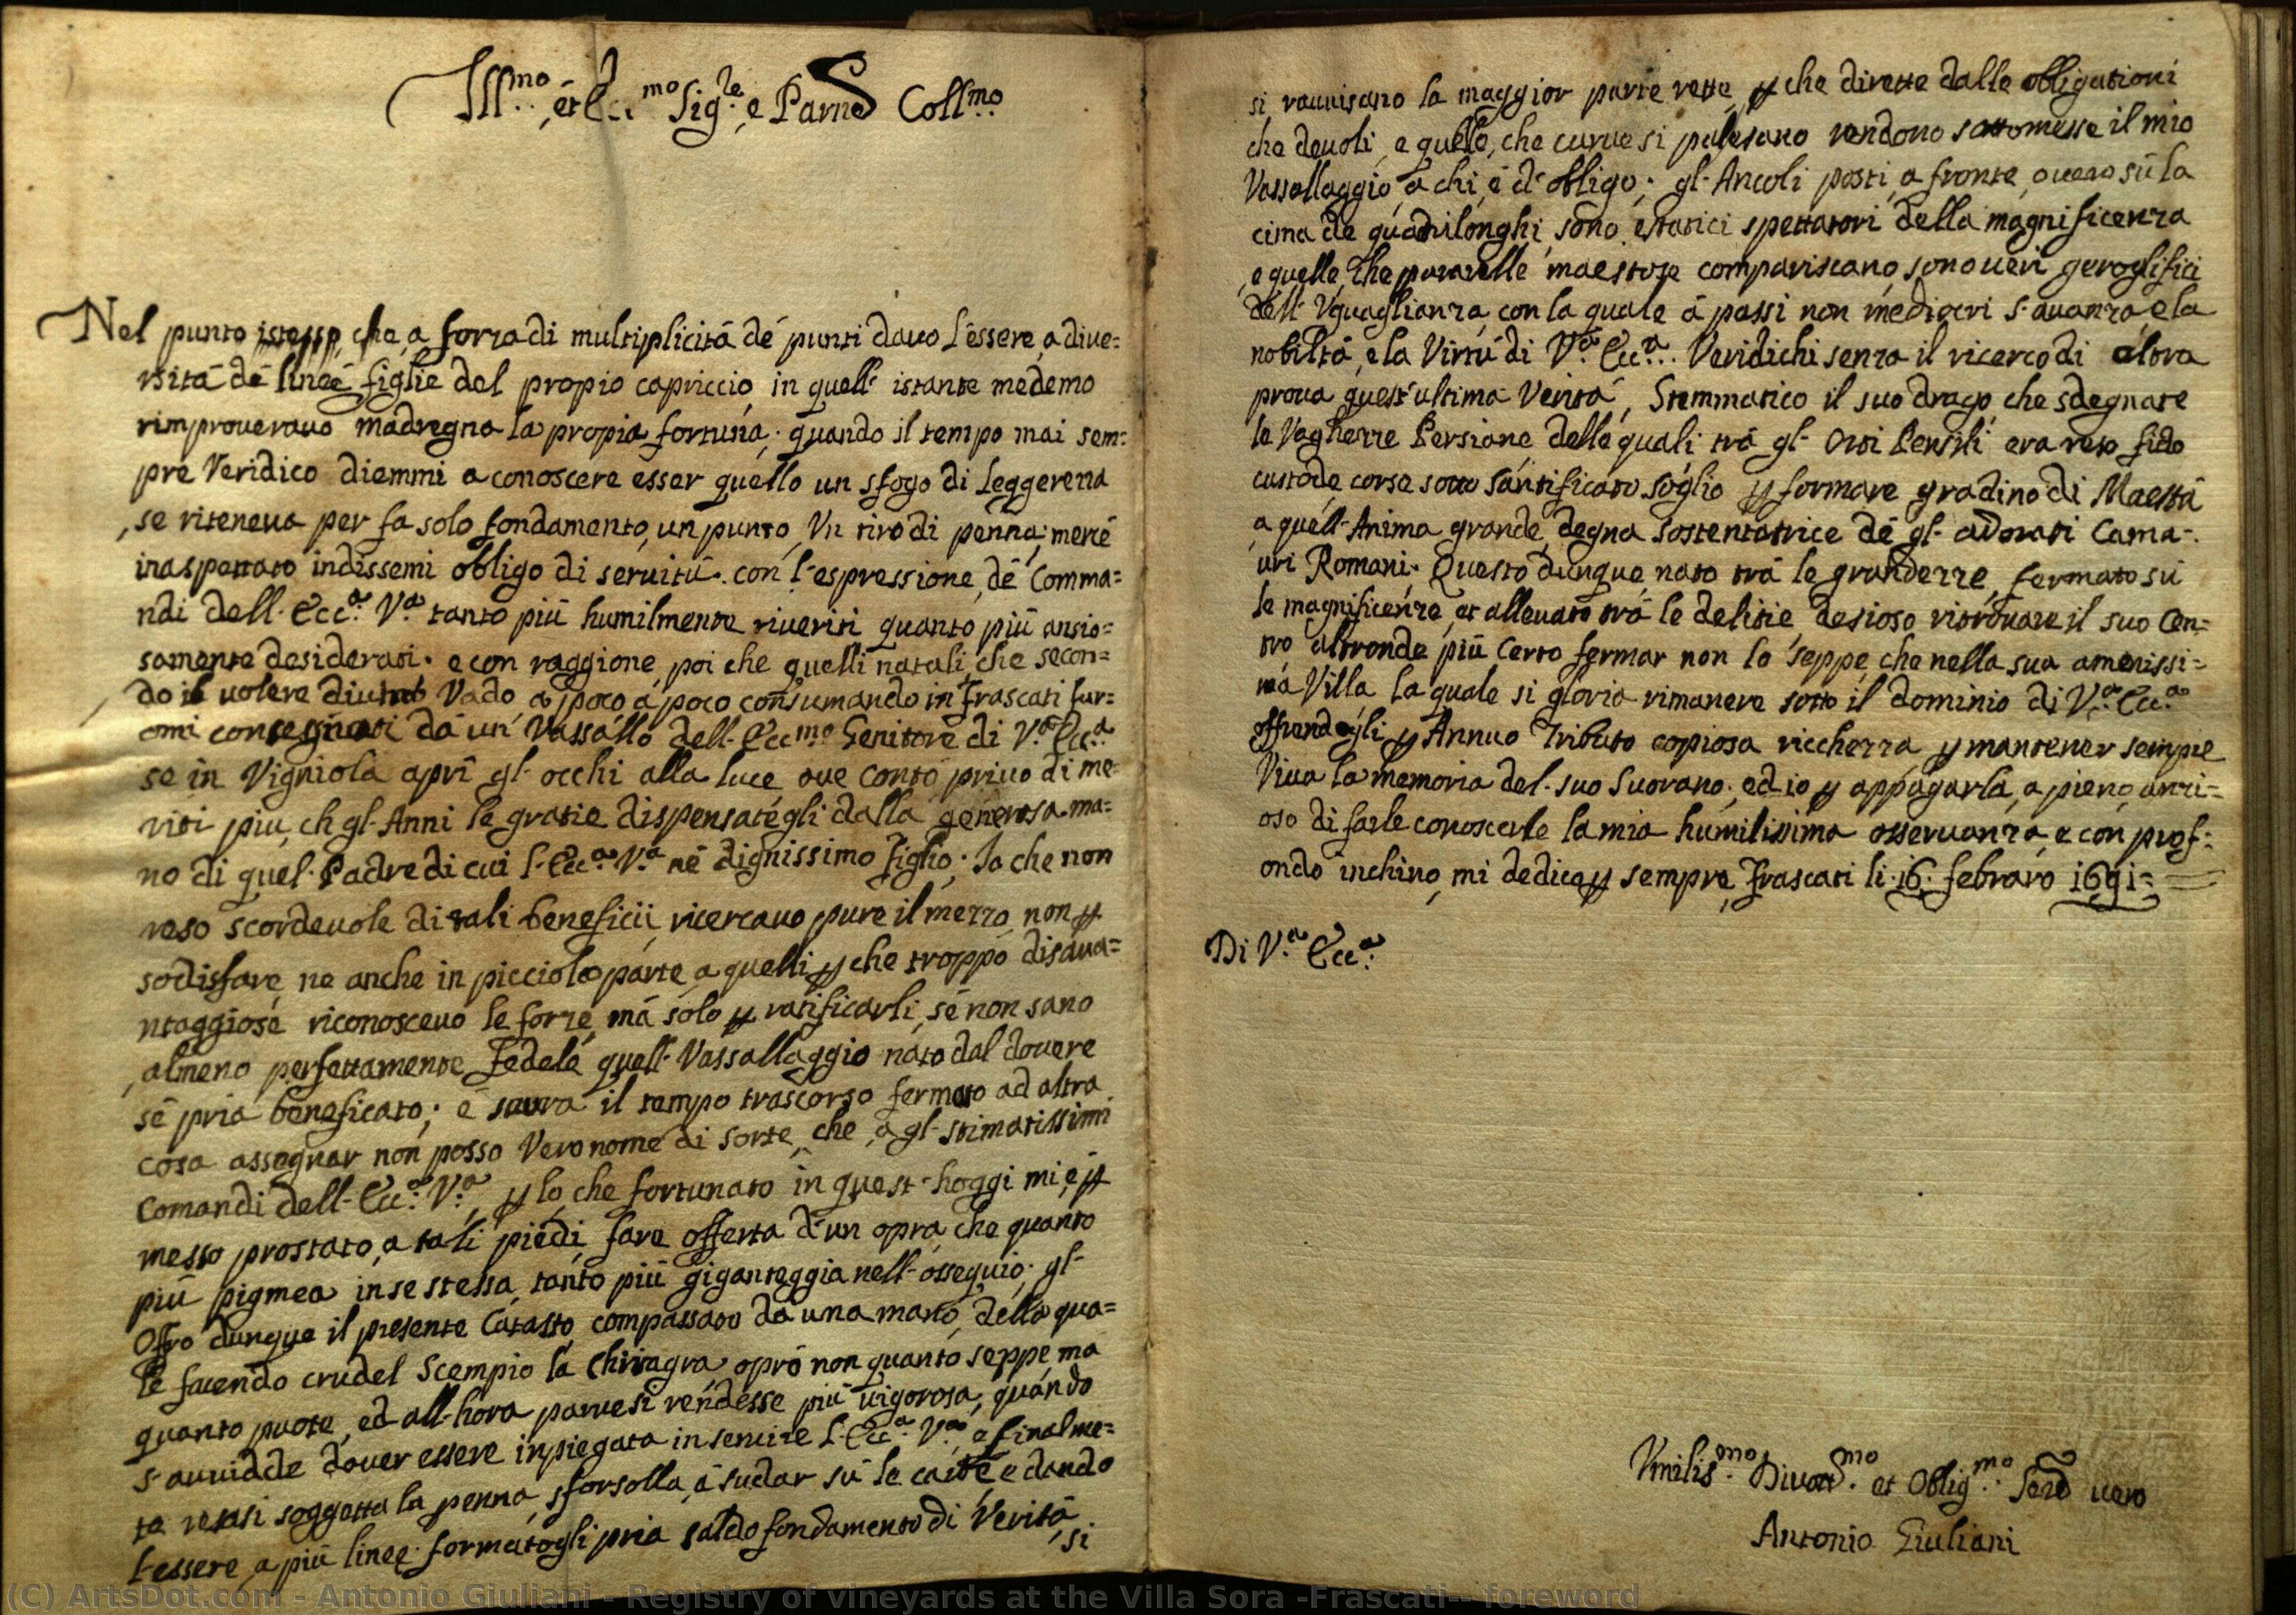 Ill.mo et Ecc.mo Sig.re e Parne Coll.mo
Nel punto istesso, che a forza di multiplicità dé punti davo l'éssere, a dive=
rsità dé lineé figlie del propio capriccio, in quell' istante medemo
rimproveravo madregna la propia fortuna; quando il tempo mai sem=
pre Veridico diemmi a conoscere esser quello un sfogo di leggereza
, se riteneva per fa solo fondamento, un punto, Un tiro di penna; mercé
inaspettato indissemi obligo di servitù. con l'espressione, dé Comma=
ndi dell' Ecc.a V.a tanto più humilmente riveriti quanto più ansio=
samente desiderati. e con raggione, poi che quelli natali, che secon=
do il volere divino Vado a poco a poco consumando in Frascati fur=
omi consegnati da un' Vassallo dell' Ecc.mo Genitore di V.a Ecc.a
se in Vigniola aprì gl' occhi alla luce ove contò privo di me=
riti più, ch gl' Anni le gratie dispensategli dalla generosa ma=
no di quel Padre di cui l' Ecc.a V.a né dignissimo Figlio; Io che non
reso scordevole di tali beneficii, ricercavo pure il mezzo, non p
sodisfare ne anche in picciola parte, a quelli p che troppo disava=
ntaggiose riconoscevo le forze, má solo p ratificarli, sé non sano
, almeno perfettamente Fedele quell' Vassallaggio nato dal dovere
sé pria beneficato; e sovra il tempo trascorso fermato ad altra
cosa assegnar non posso Vero nome di sorte, che, a gl' stimatissimi
Comandi dell' Ecc.a V.a, p lo che fortunato in quest' hoggi mi, é p
messo prostrato, a tali piedi, fare offerta d'un opra, che quanto
più pigmea in se stessa, tanto più giganteggia nell' ossequio; gl'
Offro dunque il presente Catasto compassato da una mano, della qua=
le facendo crudel Scempio la Chiragra, oprò non quanto seppe, ma
quanto puote, ed all' hora parvesi réndesse più vigorosa, quándo
s'avvidde dover essere inpiegata in servire l' Ecc.a V.a, e finalme=
te resasi soggetta la penna, sforsolla, a sudar sù le carte, e dando
l'essere, a più linee; formatogli pria saldo fondamento di Verità
, si
si ravvisano la maggior parte rette, p che dirette dalle obligationi
che devoli, e quelle, che curve si palesano rendono sottomesse il mio
Vassallaggio, a chi, é d'obligo; gl' Ancoli posti, a fronte, overo sù la
cima de quadrilonghi, sono estatici spettatori della magnificenza
, e quelle, che pararelle maestose compariscano, sono veri geroglifici
dell' Uguaglianza, con la quale a passi non mediocri s'avanza, e la
nobiltà, e la Virtù di V.a Ecc.a. Veridichi senza il ricerco di altra
prova quest' ultima Verità, Stemmatico il suo drago, che sdegnate
le Vaghezze Persiane, delle quali trà gl' Orti Pensili era reso fido
custode, corse sotto santificato soglio p formare gradino di Maestà
, a quell' Anima grande, degna sostentatrice dé gl' adorati Cama=
uri Romani. Questo dunque, nato trà le grandezze, fermato sù
le magnificenze, et allevato trà le delitie desioso ritrovare il suo Cen=
tro altronde più Certo fermar non lo seppe, che nella sua amenissi=
ma Villa la quale si gloria rimanere sotto il dominio di V.a Ecc.a
offrendogli p Annuo Tributo copiosa riccherza, p mantener sempre
Viva la memoria del suo Suorano; ed io p appagarla, a pieno, anzi=
oso di farle conoscerle la mia humilissima osservanza, e con prof=
ondo inchino, mi dedico p sempre, Frascati li 16 febraro 1691=
Di V.a Ecc.a
Vmilis.mo Divott.mo et Oblig.mo Serd vero
Antonio Giuliani
(C) ArtsDot.com - Antonio Giuliani - Registry of vineyards at the Villa Sora -Frascati-- foreword